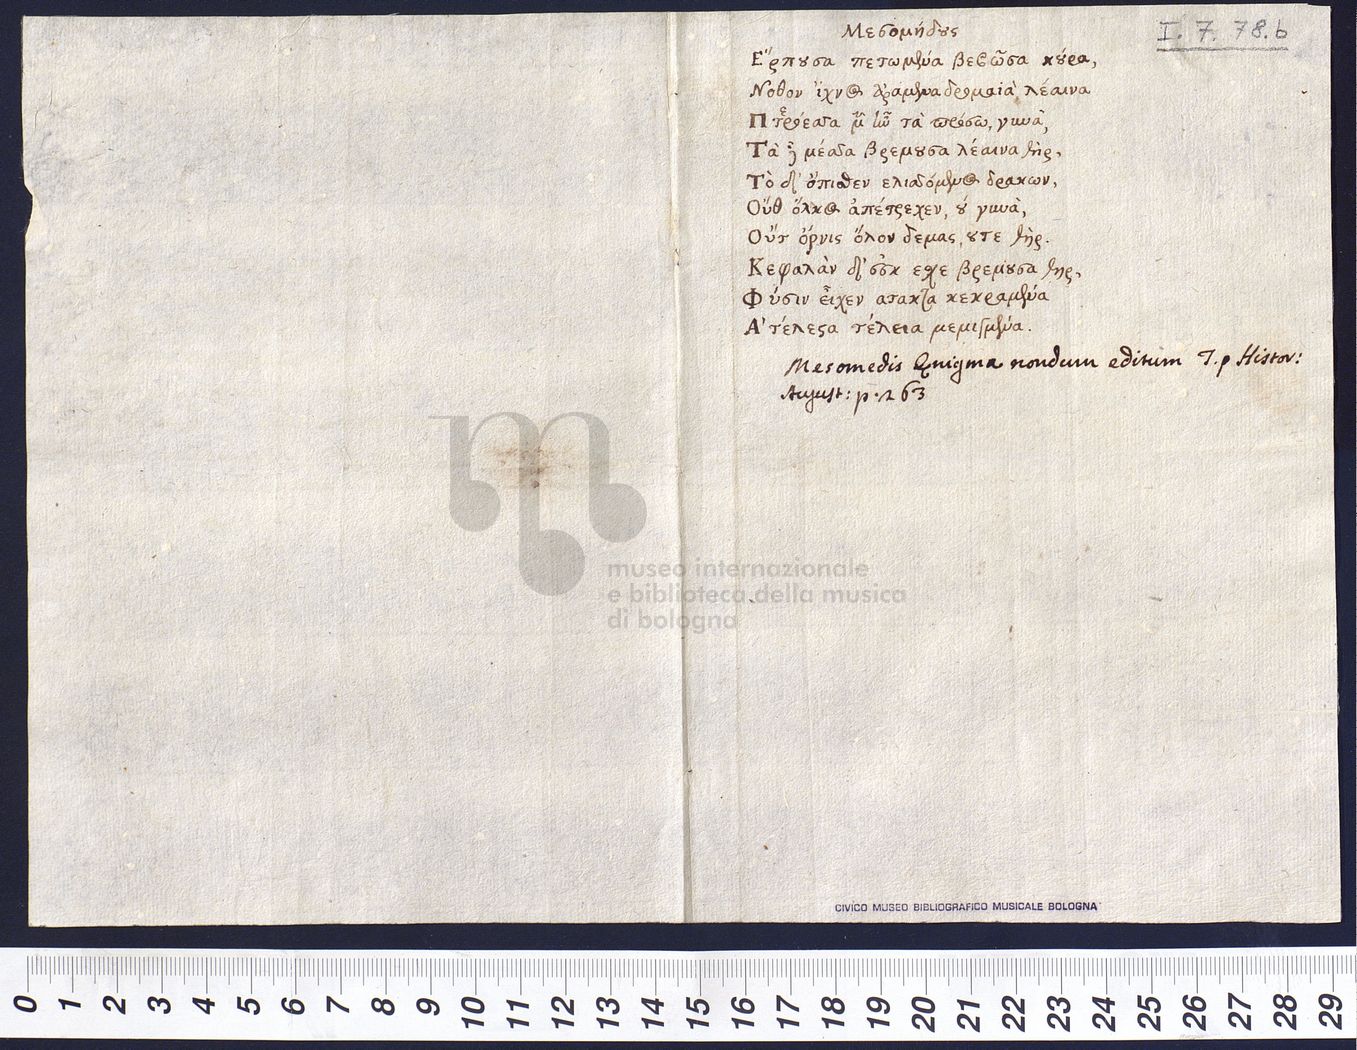 Μεσομήδους
I. 7. 78.b
Ἕρπουσα πετωμένα βεβῶσα κούρα,
Νοθον ἴχνος ἀράμενα δρομαία λέαινα
Πτερόεσσα μὲν ἰῶ τὰ πρόσω, γυνὰ,
Τὰ δὲ μέσσα βρεμουσα λέαινα θὴρ,
Τὸ δ' ὄπιθεν ελισσόμενος δρακων,
Οὔθ ὁλκος ἀπέτρεχεν, ού γυνὰ,
Οὔτ ὄρνις ὅλον δεμας, ουτε θὴρ.
Κεφαλὰν δ' οὐκ εχε βρεμουσα θηρ,
Φύσιν εἶχεν ατακτα κεκραμένα
Ἀτέλεστα τέλεια μεμιγμένα.
Mesomedis Ænigma nondum editum T. p Histor:
August: p. 263
museo internazionale
e biblioteca della musica
di bologna
CIVICO MUSEO BIBLIOGRAFICO MUSICALE BOLOGNA
0 1 2 3 4 5 6 7 8 9 10 11 12 13 14 15 16 17 18 19 20 21 22 23 24 25 26 27 28 29